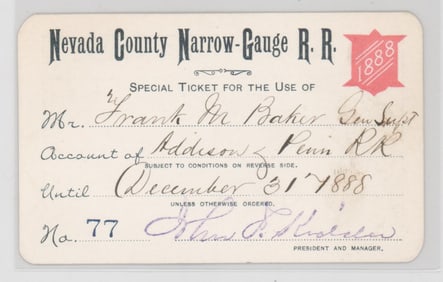 Nevada County Narrow-Gauge R. R.
1888
Special Ticket for the Use of
Mr. Frank M Baker Gen Supt
Account of Addison & Penn RR
SUBJECT TO CONDITIONS ON REVERSE SIDE.
Until December 31st 1888
UNLESS OTHERWISE ORDERED.
No. 77 John F. Kidder
PRESIDENT AND MANAGER.